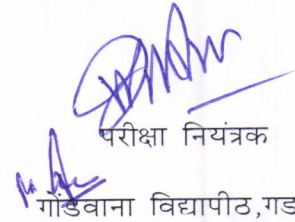 परीक्षा नियंत्रक
गोंडवाना विद्यापीठ,गड